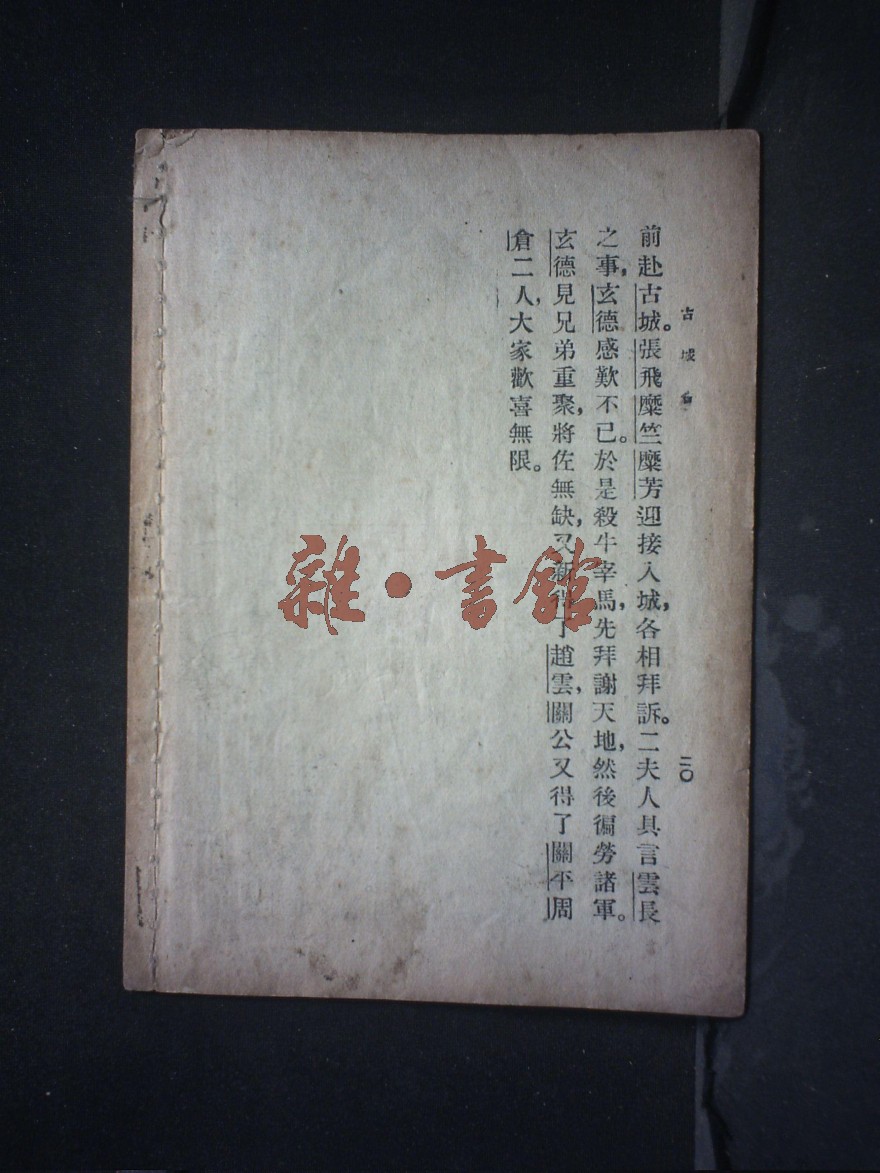 古城會
二〇
前赴古城。張飛糜竺糜芳迎接入城，各相拜訴。二夫人具言雲長
之事，玄德感歎不已。於是殺牛宰馬，先拜謝天地，然後徧勞諸軍。
玄德見兄弟重聚，將佐無缺，又新得了趙雲，關公又得了關平周
倉二人，大家歡喜無限。
雜·書館